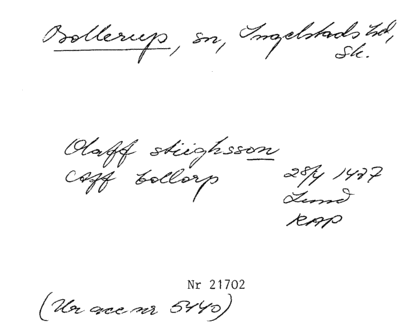 Bollerup, sn, Ingelstads hd,
Sk.
Olaff stiighsson
aff bollorp 28/4 1477
Lund
RAP
Nr 21702
(Ur acc nr 5440)